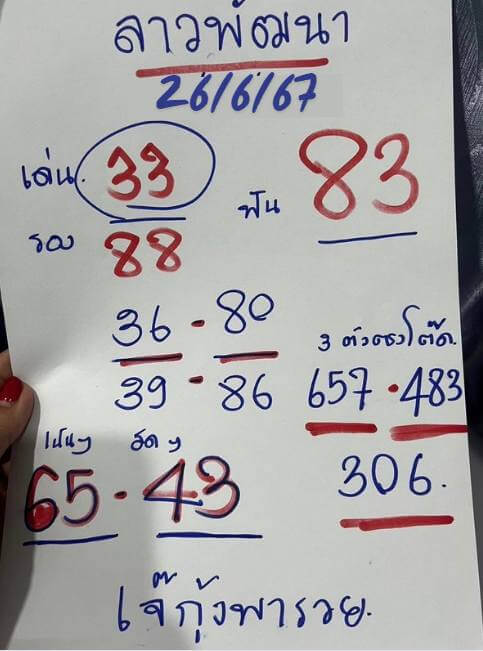 ลาวพัฒนา
26/6/67
เด่น. 33
รอง 88
ฟัน 83
36 - 80
39 - 86
3 ตัวตรงโต๊ด.
657 . 483
306.
เน้นๆ อัดๆ
65 - 43
เจ๊กุ้งพารวย.